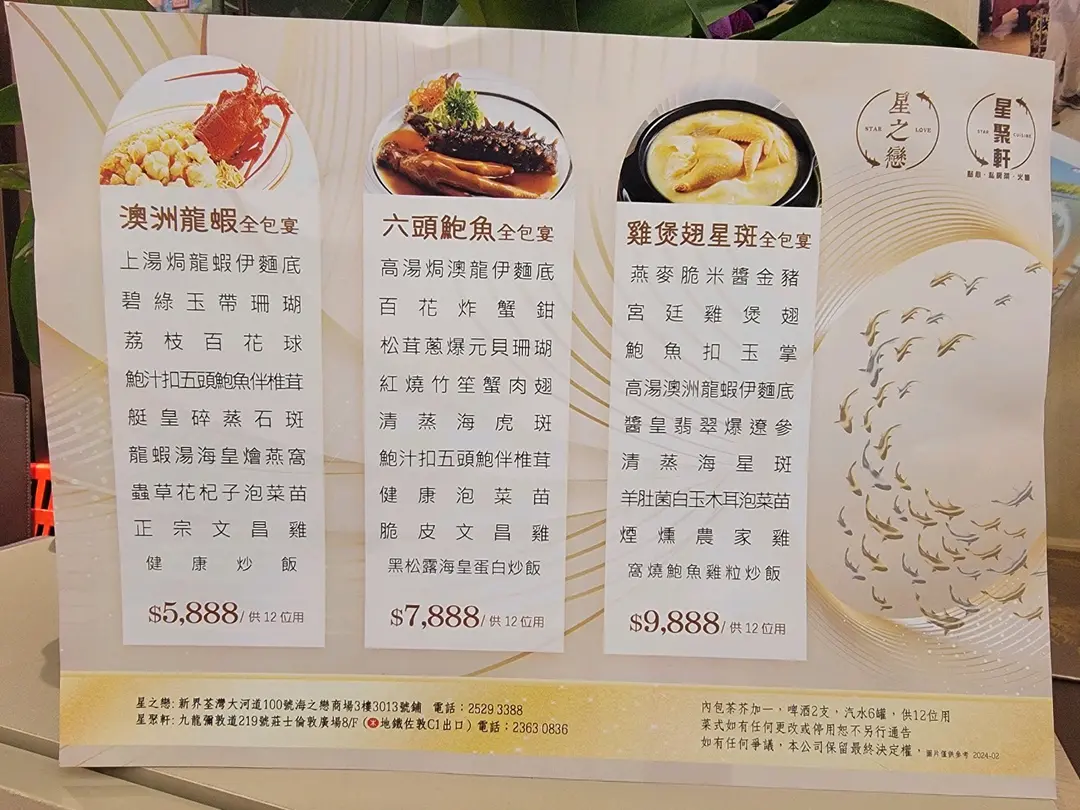 星之戀
STAR LOVE
星聚軒
STAR CUISINE
點心·私房菜·火鍋
澳洲龍蝦全包宴
上湯焗龍蝦伊麵底
碧綠玉帶珊瑚
荔枝百花球
鮑汁扣五頭鮑魚伴椎茸
艇皇碎蒸石斑
龍蝦湯海皇燴燕窩
蟲草花杞子泡菜苗
正宗文昌雞
健康炒飯
$5,888/供12位用
六頭鮑魚全包宴
高湯焗澳龍伊麵底
百花炸蟹鉗
松茸蔥爆元貝珊瑚
紅燒竹笙蟹肉翅
清蒸海虎斑
鮑汁扣五頭鮑伴椎茸
健康泡菜苗
脆皮文昌雞
黑松露海皇蛋白炒飯
$7,888/供12位用
雞煲翅星斑全包宴
燕麥脆米醬金豬
宮廷雞煲翅
鮑魚扣玉掌
高湯澳洲龍蝦伊麵底
醬皇翡翠爆遼參
清蒸海星斑
羊肚菌白玉木耳泡菜苗
煙燻農家雞
窩燒鮑魚雞粒炒飯
$9,888/供12位用
星之戀: 新界荃灣大河道100號海之戀商場3樓3013號鋪 電話：2529 3388
星聚軒: 九龍彌敦道219號莊士倫敦廣場8/F (地鐵佐敦C1出口) 電話：2363 0836
內包茶芥加一，啤酒2支，汽水6罐，供12位用
菜式如有任何更改或停用恕不另行通告
如有任何爭議，本公司保留最終決定權，圖片僅供參考 2024-02